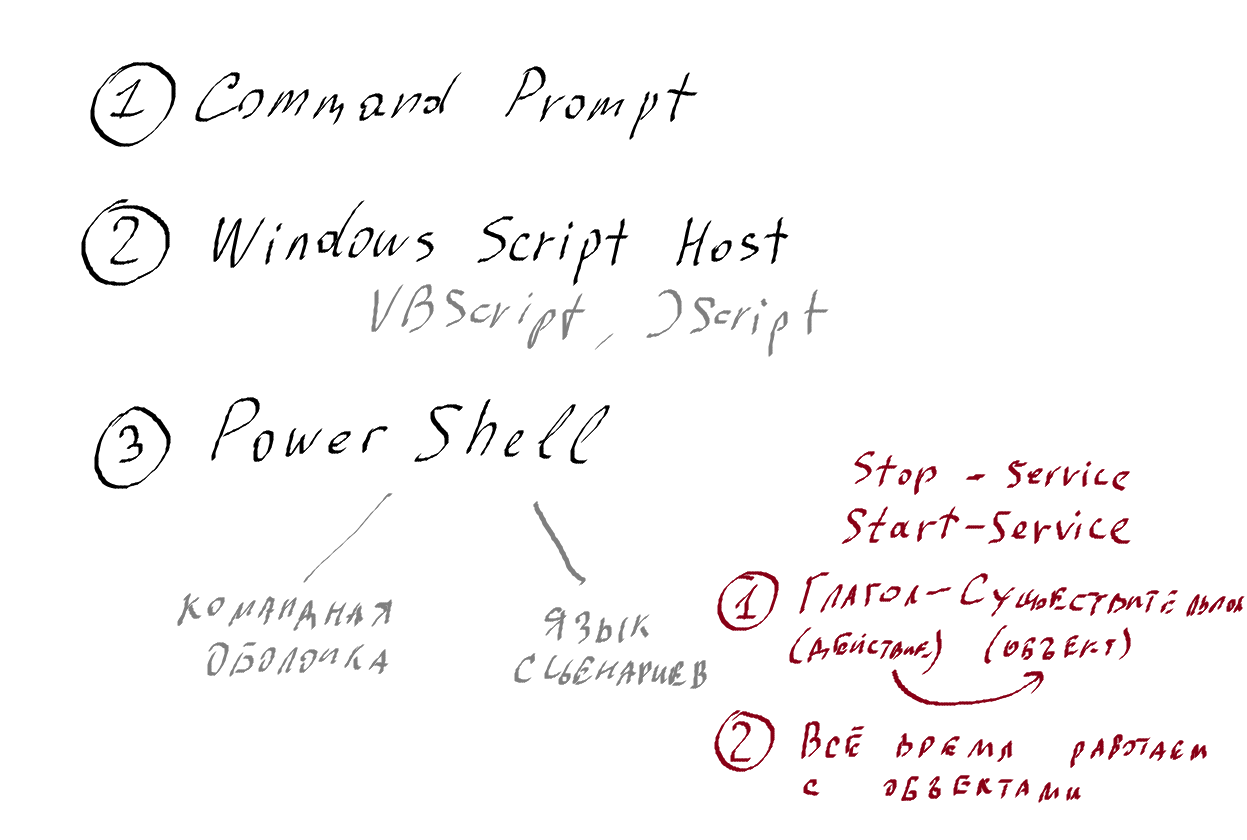 ① Command Prompt
② Windows Script Host
VBScript, JScript
③ Power Shell
командная
оболочка
язык
сценариев
Stop - Service
Start-Service
① Глагол-Существительное
(действие) (объект)
② Всё время работаем
с объектами